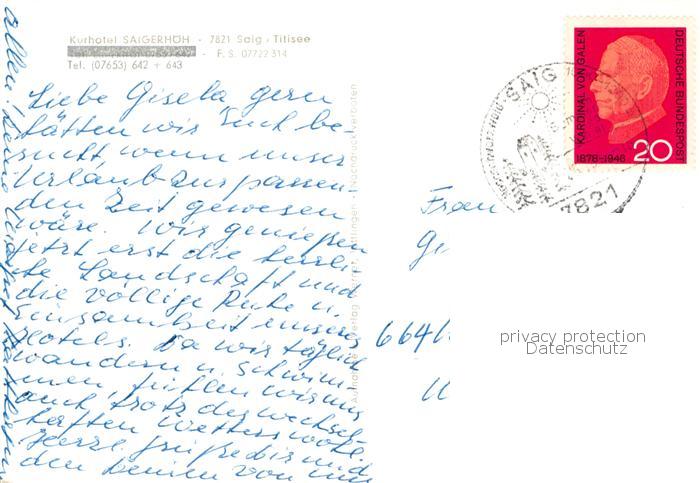 Kurhotel SAIGERHÖH - 7821 Saig - Titisee
F. S. 07722 314
Tel. (07653) 642 + 643
Liebe Gisela gern
hätten wir Euch be-
sucht wenn unser
Urlaub zur passen-
den Zeit gewesen
wäre. Wir genießen
jetzt erst die herrli-
che Landschaft und
die völlige Ruhe u.
Einsamkeit unseres
Hotels. Da wir täglich
wandern u. schwim-
men, fühlen wir uns
auch trotz des wechsel-
haften Wetters wohl.
Herzl. Grüße dir und
den Deinen von uns
allen.
Nachdruck verboten
Verlag
Frau
Gi
664
KARDINAL VON GALEN
1878-1946
DEUTSCHE BUNDESPOST
20
SAIG
7821
privacy protection
Datenschutz